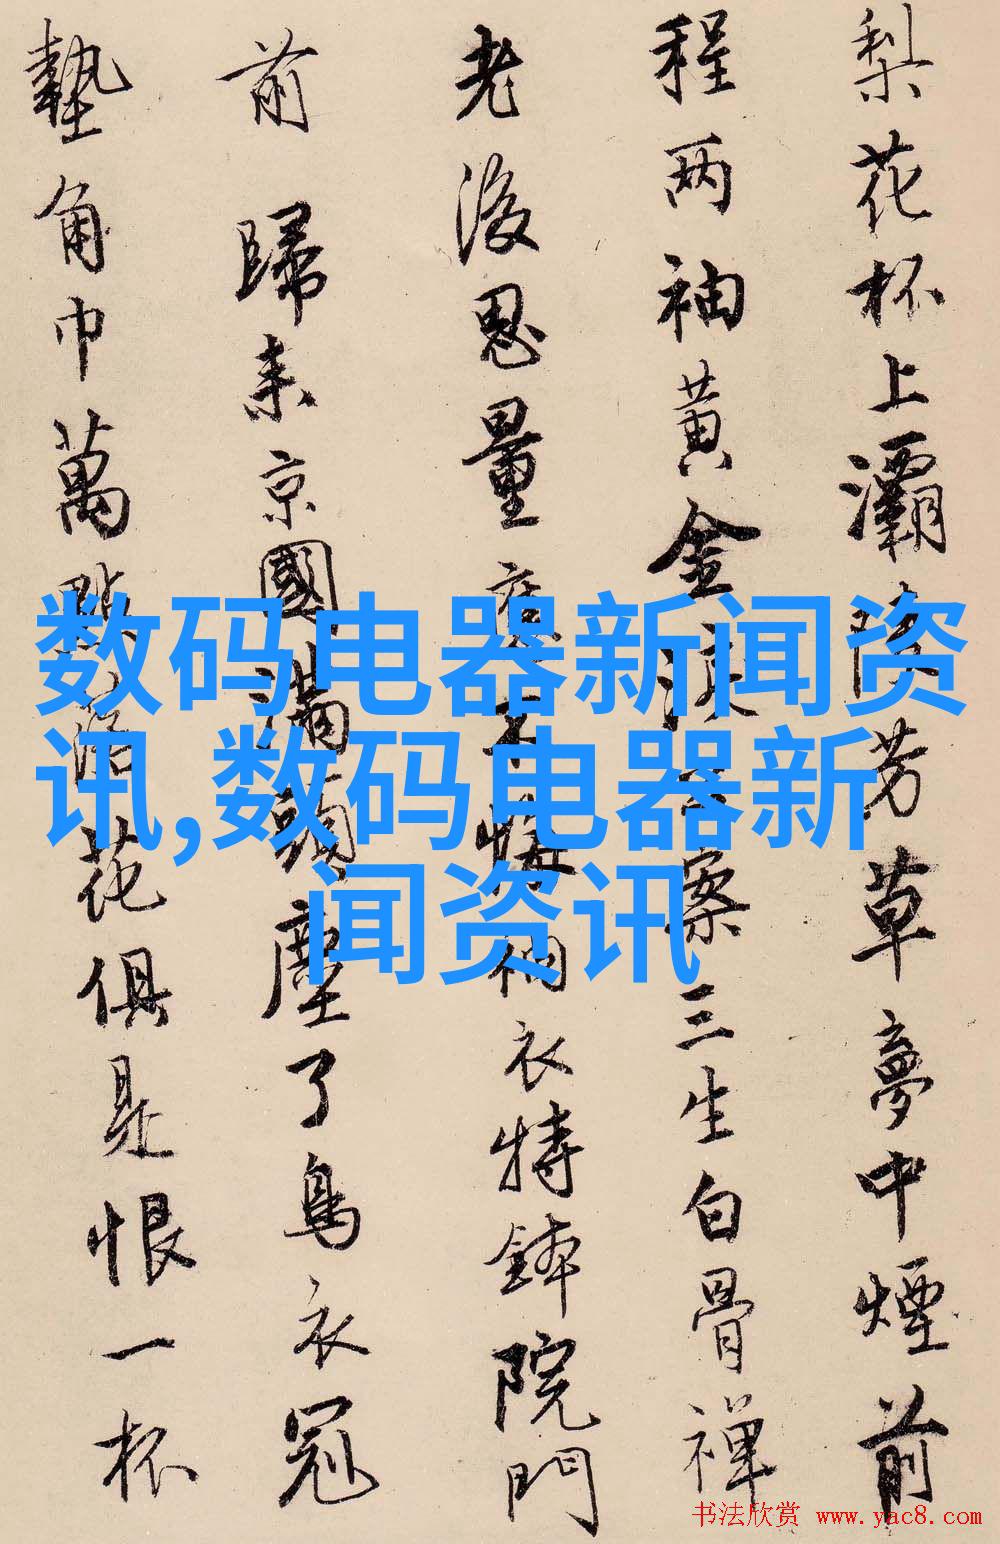 梨花杯上灞陵芳草夢中煙前
程两袖黄金淚公案三生白骨禪
老後思量應不悔衲衣持鉢院門
前 歸来京國滿頭塵了鳥衣冠
墊角巾萬點落花俱是恨一杯
数码电器新闻资
讯,数码电器新
闻资讯
书法欣赏 www.yac8.com